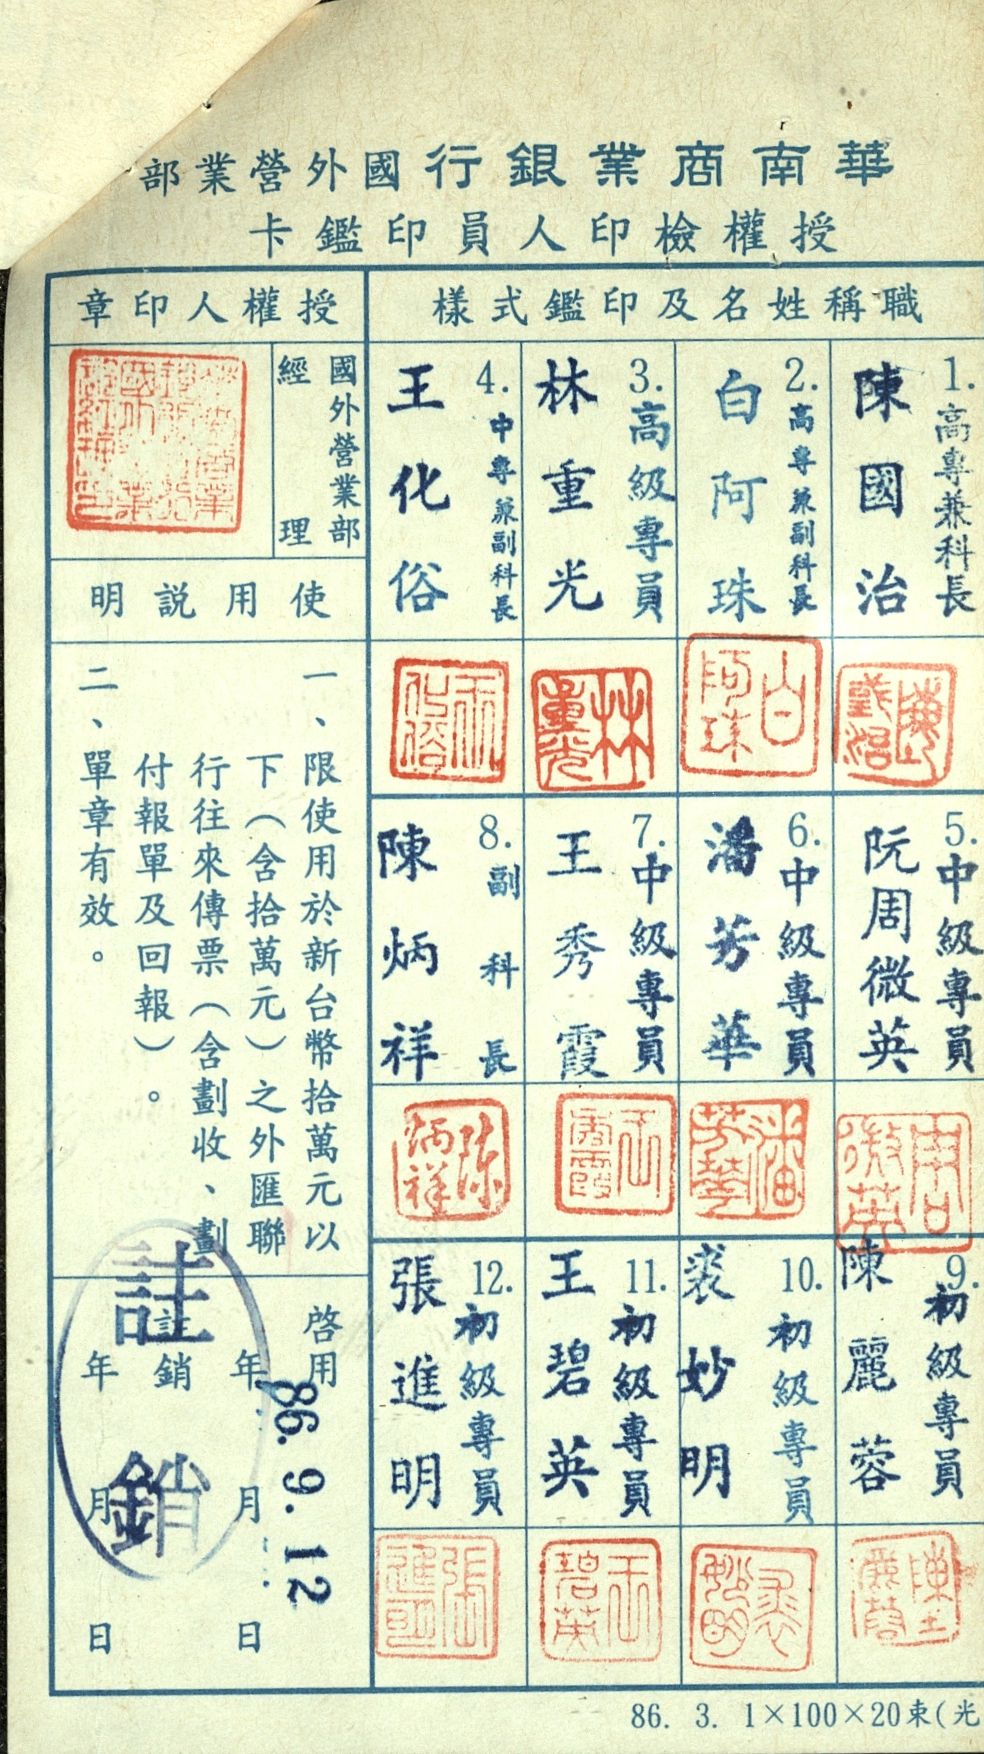 華南商業銀行國外營業部
授權檢印人員印鑑卡
職稱姓名及印鑑式樣
授權人印章
1.高專兼科長
陳國治
2.高專兼副科長
白阿珠
3.高級專員
林重光
4.中專兼副科長
王化俗
國外營業部
經理
陳國治
白阿珠
林重光
王化俗
使用說明
一、限使用於新台幣拾萬元以
下（含拾萬元）之外匯聯
行往來傳票（含劃收、劃
付報單及回報）。
二、單章有效。
5.中級專員
阮周微英
6.中級專員
潘芳華
7.中級專員
王秀霞
8.副科長
陳炳祥
周微英
潘芳華
王秀霞
陳炳祥
9.初級專員
陳麗蓉
10.初級專員
裘妙明
11.初級專員
王碧英
12.初級專員
張進明
啓用
年月日
86. 9. 12
註銷
年月日
註銷
陳麗蓉
裘妙明
王碧英
張進明
86. 3. 1×100×20束(光